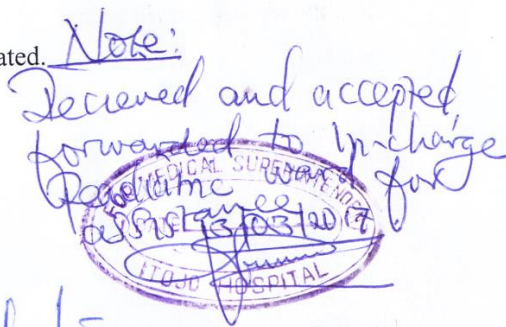 ated. Note:
Recieved and accepted
forwarded to Incharge
Paediatric for
assistance
13/03/2017
MEDICAL SUPERINTENDENT
ITOJO HOSPITAL